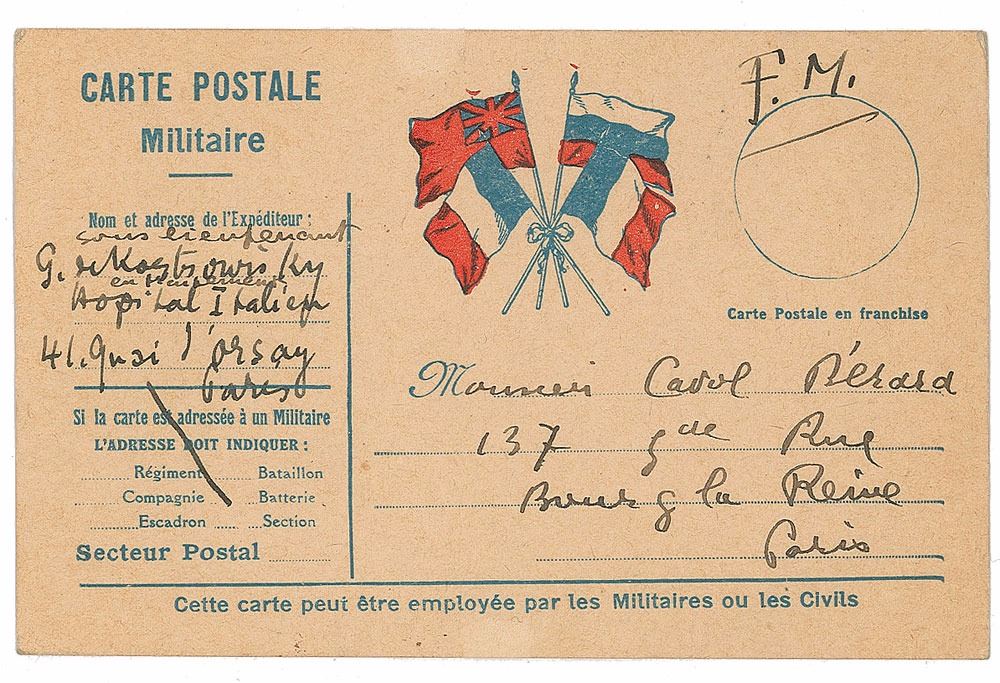 CARTE POSTALE
Militaire
Nom et adresse de l'Expéditeur :
sous lieutenant
G. de Kostrowitzky
en traitement
Hopital Italien
41. Quai d'orsay
Paris
Si la carte est adressée à un Militaire
L'ADRESSE DOIT INDIQUER :
Régiment Bataillon
Compagnie Batterie
Escadron Section
Secteur Postal
F. M.
Carte Postale en franchise
Monsieur Carol Bérard
137 gde Rue
Bourg la Reine
Paris
Cette carte peut être employée par les Militaires ou les Civils